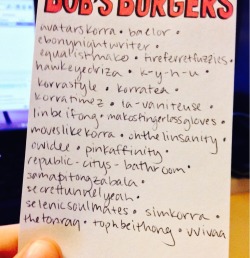 BOB'S BURGERS
avatarskorra • baelor •
ebonynightwriter •
equalistmako • fireferretfuzzies •
hawkeyedriza • k-y-h-u •
korrastyle • korratea •
korratimez • la-vaniteuse •
linbeifong • makosfingerlessgloves •
moveslikekorra • ohthelinsanity •
owldee • pinkaffinity •
republic-citys-bathroom •
samapitongzabala •
secrettunnelyeah •
selenicsoulmates • simkorra •
thetonraq • tophbeithong • vvivaa